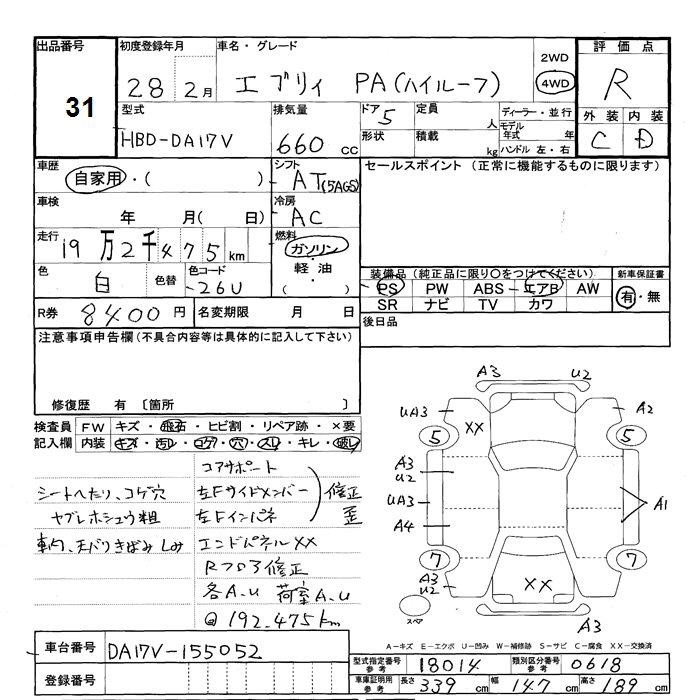 出品番号 初度登録年月 車名・グレード 評価点
31
28年 2月 エブリィ PA(ハイルーフ) 2WD 4WD R
型式 排気量 ドア 5 定員 人 ディーラー・並行 外装 内装
HBD-DA17V 660cc 形状 積載 kg モデル年式 年 C D
ハンドル 左・右
車歴 シフト セールスポイント (正常に機能するものに限ります)
自家用・( ) AT(5AGS)
車検 冷房
年 月( 日) AC
走行 19万2千475km 燃料 ガソリン・軽油・( )
色 白 色替 色コード 26U
装備品 (純正品に限り○をつけてください) 新車保証書
PS PW ABS エアB AW 有・無
SR ナビ TV カワ
R券 8400円 名変期限 月 日 後日品
注意事項申告欄(不具合内容等は具体的に記入して下さい)
修復歴 有 〔箇所 〕
検査員 FW キズ・飛石・ヒビ割・リペア跡・×要
記入欄 内装 キズ・汚れ・コゲ・穴・スレ・キレ・破レ
コアサポート
シートへたり、コゲ穴 左Fサイドメンバー 修正
ヤブレホシュウ粗 左Fインパネ 歪
車内、天バリきばみ しみ エンドパネルXX
Rフロア修正
各A.U 荷室A.U
@192.475km
A3 U2
UA3 XX A2
5 5
A3
U2
UA3 A1
A4
7 7
A3
U2 XX
スペア A3
A-キズ E-エクボ U-凹み W-補修跡 S-サビ C-腐食 XX-交換済
車台番号 DA17V-155052
型式指定番号 参考 18014 類別区分番号 参考 0618
登録番号
車庫証明用 参考 長さ 339cm 幅 147cm 高さ 189cm